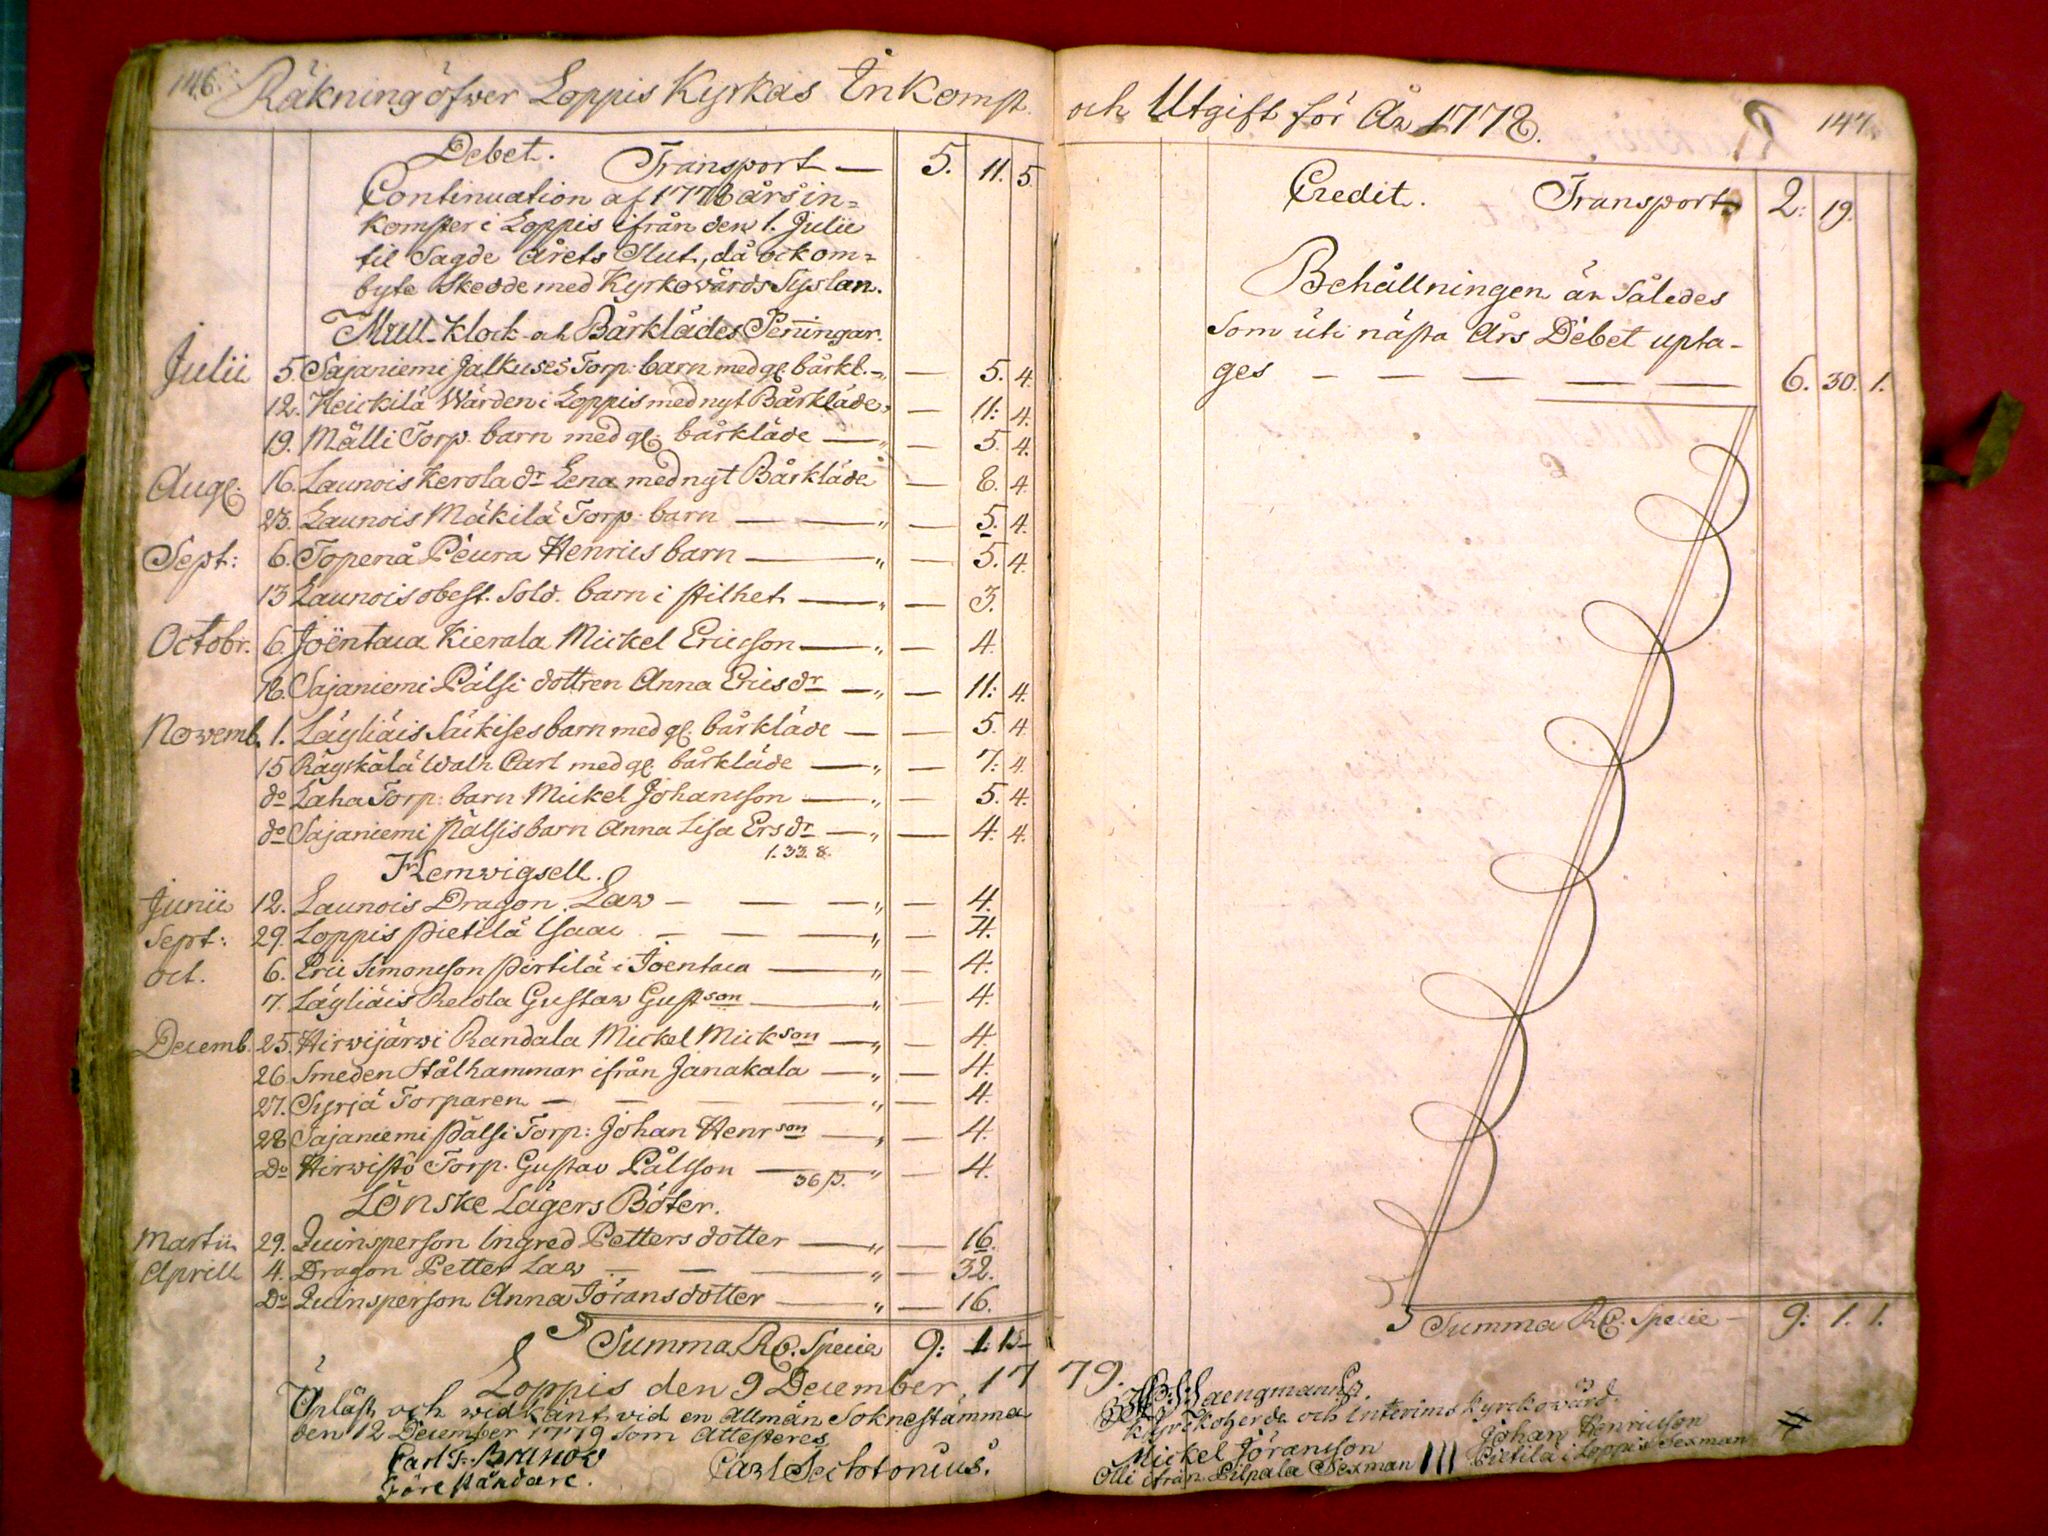 146. Räkning öfwer Loppis Kyrkas Inkomst
Debet. Transport — 5. 11. 5
Continuation af 1778 års in=
komster i Loppis ifrån den 1. Julii
til sagde årets slut, då ock om=
byte skedde med Kyrkowärds Syslan.
Mull- klock- och Bårklädes Peningar.
Julii 5. Sajaniemi Jalkuses Torp: barn med gl. bårkl. — — 5. 4.
12. Heickilä Wärden i Loppis med nyt Bårkläde — 11: 4.
19. Mälli Torp. barn med gl. bårkläde — „ — 5. 4.
Aug. 16. Launois Kerola dr Lena med nyt Bårkläde — 8. 4.
23. Launois Mäkilä Torp. barn — — „ — 5. 4.
Sept: 6. Topenå Peura Henrics barn — „ — 5. 4.
13 Launois obest. Sold. barn i stilhet — „ — 3.
Octobr. 6. Joëntaca Kierala Mickel Ericsson — „ — 4.
18. Sajaniemi Pälsi dottren Anna Erics dr — „ — 11: 4.
Novemb. 1. Läyliäis Säkises barn med gl. bårkläde — — 5. 4
15 Räyskälä Waln Carl med gl. bårkläde — „ — 7: 4.
do Laha Torp: barn Mickel Johansson — „ — 5. 4.
do Sajaniemi Pälsis barn Anna Lisa Ers dr — „ — 4. 4.
1. 33. 8.
Flemwigsell.
Junii 12. Launois Dragon Law — — — „ — 4.
Sept: 29. Loppis Pietilä Isaac — — — „ — 4.
Oct. 6. Eric Simonsson Pirtilä i Joentaca — „ — 4.
7. Läyliäis Reiola Gustaw Gustson — „ — 4.
Decemb. 25. Hirwijärwi Randala Mickel Mickson — „ — 4.
26. Smeden Stålhammar ifrån Janakala — „ — 4.
27. Syrjä Torparen — — — — „ — 4.
28 Sajaniemi Pälsi Torp: Johan Henrson — „ — 4.
Do Hirwistö Torp. Gustav Pålsson — „ — 4.
36 β.
Lönske Lägers Böter.
Martii 29. Quinsperson Ingred Petters dotter — „ — 16.
Aprill 4. Dragon Petter Law — — — „ — 32.
Do Quinsperson Anna Jörans dotter — „ — 16.
Summa Rd. Specie 9: 1: 1
Loppis den 9 December 17
Upläst och wid känt vid en Allmän Soknestämma
den 12 December 1779 som Attesteres
Carl F. Brunow Carl Sechtonius.
Föreståndare.
och Utgift för År 1778. 147.
Credit. Transport 2: 19.
Behållningen är Således
som uti nästa Års Debet upta-
ges — — — — — — 6. 30. 1.
Summa Rd. Specie — 9: 1. 1.
79.
Kyrkoherde och Interims kyrckowärd.
Mickel Jöransson Johan Henricsson
Olli ifrån Pilpala Sexman III Pietilä i Loppis Sexman #